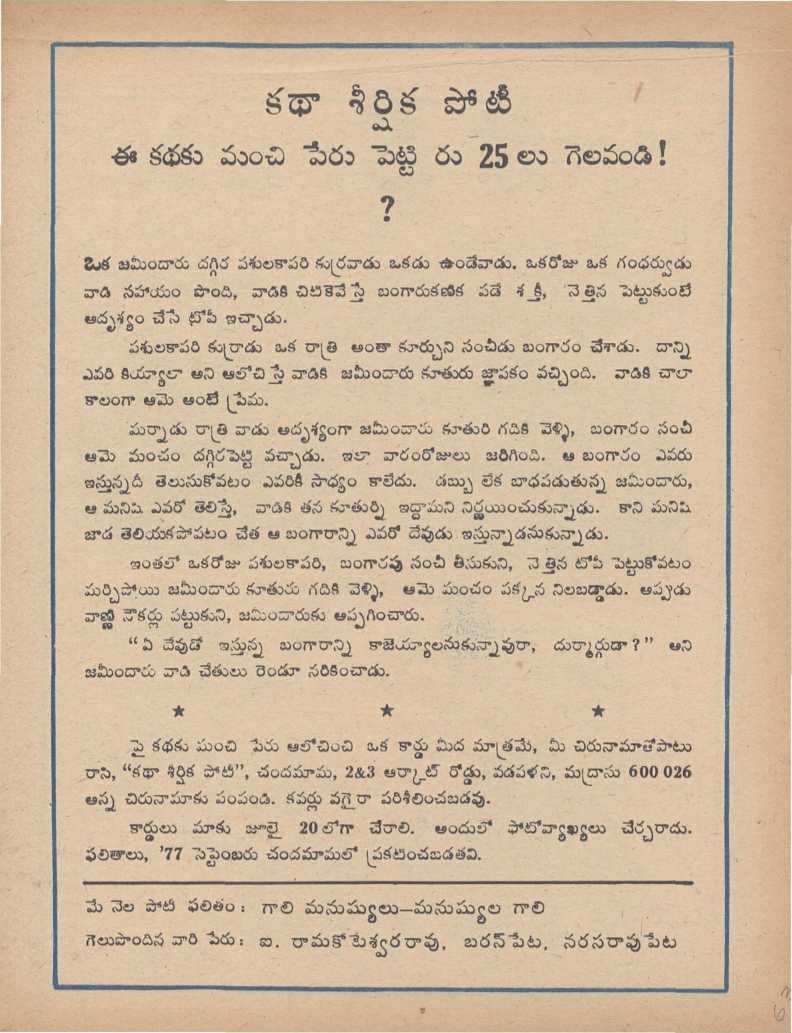 కథా శీర్షిక పోటీ
ఈ కథకు మంచి పేరు పెట్టి రు 25 లు గెలవండి!
?
ఒక జమీందారు దగ్గిర పశులకాపరి కుర్రవాడు ఒకడు ఉండేవాడు. ఒకరోజు ఒక గంధర్వుడు
వాడి సహాయం పొంది, వాడికి చిటికెవేస్తే బంగారుకణిక పడే శక్తీ, నెత్తిన పెట్టుకుంటే
అదృశ్యం చేసే టోపీ ఇచ్చాడు.
పశులకాపరి కుర్రాడు ఒక రాత్రి అంతా కూర్చుని సంచీడు బంగారం చేశాడు. దాన్ని
ఎవరి కియ్యాలా అని ఆలోచిస్తే వాడికి జమీందారు కూతురు జ్ఞాపకం వచ్చింది. వాడికి చాలా
కాలంగా ఆమె అంటే ప్రేమ.
మర్నాడు రాత్రి వాడు అదృశ్యంగా జమీందారు కూతురి గదికి వెళ్ళి, బంగారం సంచీ
ఆమె మంచం దగ్గిరపెట్టి వచ్చాడు. ఇలా వారంరోజులు జరిగింది. ఆ బంగారం ఎవరు
ఇస్తున్నదీ తెలుసుకోవటం ఎవరికీ సాధ్యం కాలేదు. డబ్బు లేక బాధపడుతున్న జమీందారు,
ఆ మనిషి ఎవరో తెలిస్తే, వాడికి తన కూతుర్ని ఇద్దామని నిర్ణయించుకున్నాడు. కాని మనిషి
జాడ తెలియకపోవటం చేత ఆ బంగారాన్ని ఎవరో దేవుడు ఇస్తున్నాడనుకున్నాడు.
ఇంతలో ఒకరోజు పశులకాపరి, బంగారపు సంచీ తీసుకుని, నెత్తిన టోపీ పెట్టుకోవటం
మర్చిపోయి జమీందారు కూతురు గదికి వెళ్ళి, ఆమె మంచం పక్కన నిలబడ్డాడు. అప్పుడు
వాణ్ణి నౌకర్లు పట్టుకుని, జమీందారుకు అప్పగించారు.
“ఏ దేవుడో ఇస్తున్న బంగారాన్ని కాజెయ్యాలనుకున్నావురా, దుర్మార్గుడా?” అని
జమీందారు వాడి చేతులు రెండూ నరికించాడు.
★ ★ ★
పై కథకు మంచి పేరు ఆలోచించి ఒక కార్డు మీద మాత్రమే, మీ చిరునామాతోపాటు
రాసి, “కథా శీర్షిక పోటీ”, చందమామ, 2&3 ఆర్కాట్ రోడ్డు, వడపళని, మద్రాసు 600 026
అన్న చిరునామాకు పంపండి. కవర్లు వగైరా పరిశీలించబడవు.
కార్డులు మాకు జూలై 20 లోగా చేరాలి. అందులో ఫోటోవ్యాఖ్యలు చేర్చరాదు.
ఫలితాలు, '77 సెప్టెంబరు చందమామలో ప్రకటించబడతవి.
మే నెల పోటీ ఫలితం: గాలి మనుష్యులు—మనుష్యుల గాలి
గెలుపొందిన వారి పేరు: ఐ. రామకోటేశ్వరరావు, బరన్‌పేట, నరసరావుపేట